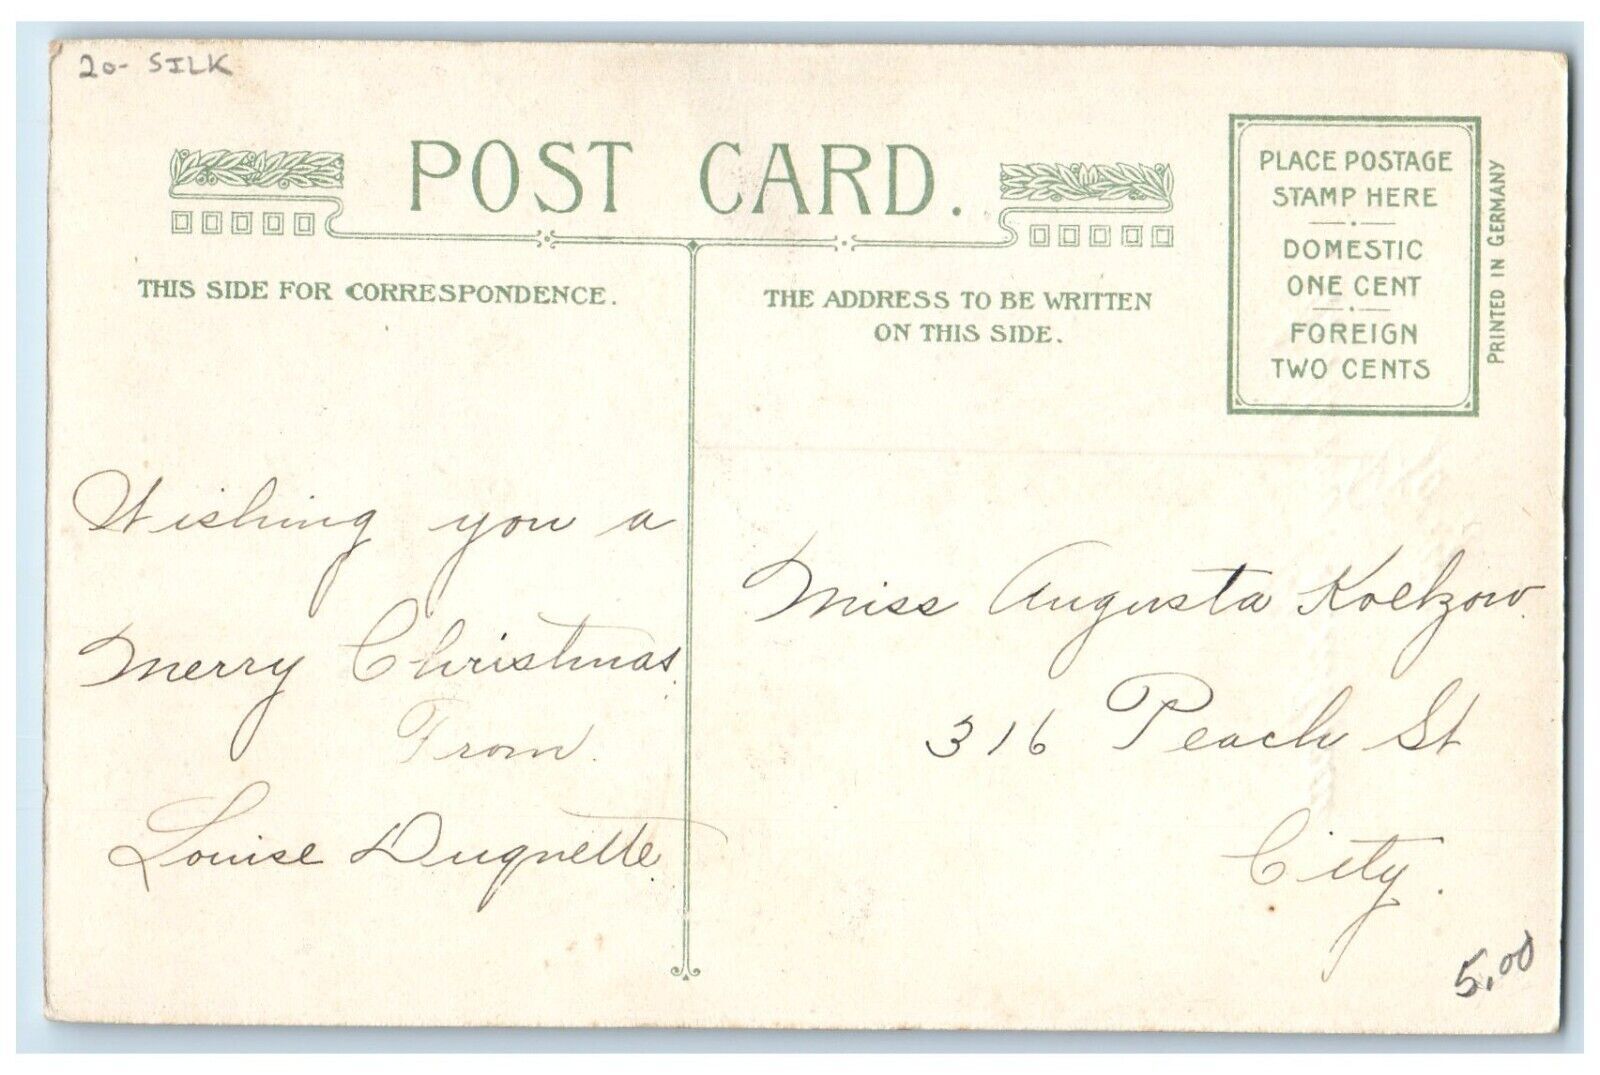 20- SILK
POST CARD.
THIS SIDE FOR CORRESPONDENCE.
THE ADDRESS TO BE WRITTEN
ON THIS SIDE.
PLACE POSTAGE
STAMP HERE
DOMESTIC
ONE CENT
FOREIGN
TWO CENTS
PRINTED IN GERMANY
Wishing you a
Merry Christmas.
From.
Louise Duquette.
Miss Augusta Koelzow.
316 Peach St
City.
5.00